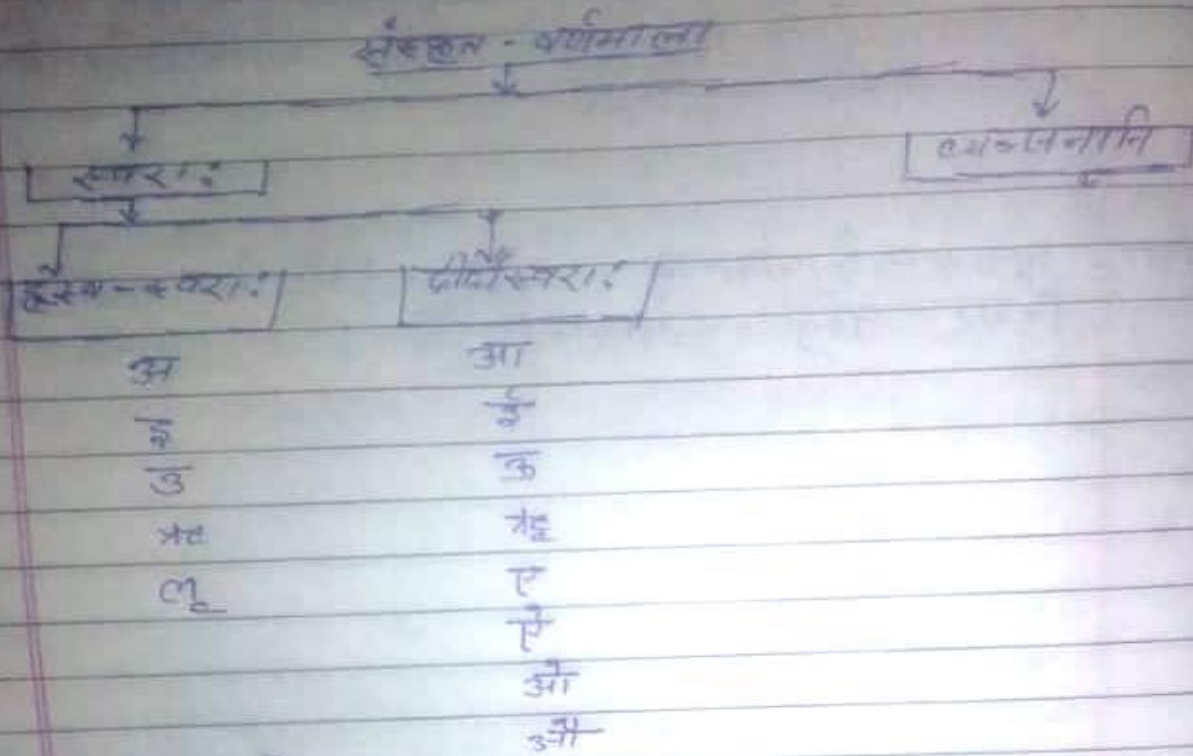 संस्कृत - वर्णमाला
स्वराः व्यञ्जनानि
ह्रस्व-स्वराः दीर्घस्वराः
अ आ
इ ई
उ ऊ
ऋ ॠ
लृ ए
ऐ
ओ
औ